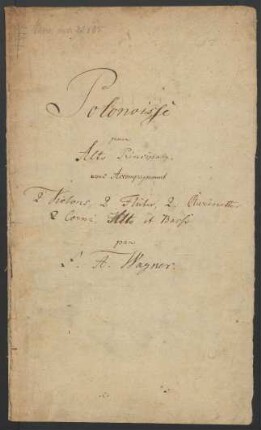 Polonoisse
pour
Alto Principal.
avec Accompagnement
2 Violons, 2 Flutes, 2, Clarinette
2 Corni Alto et Basso
par
F. A. Wagner.